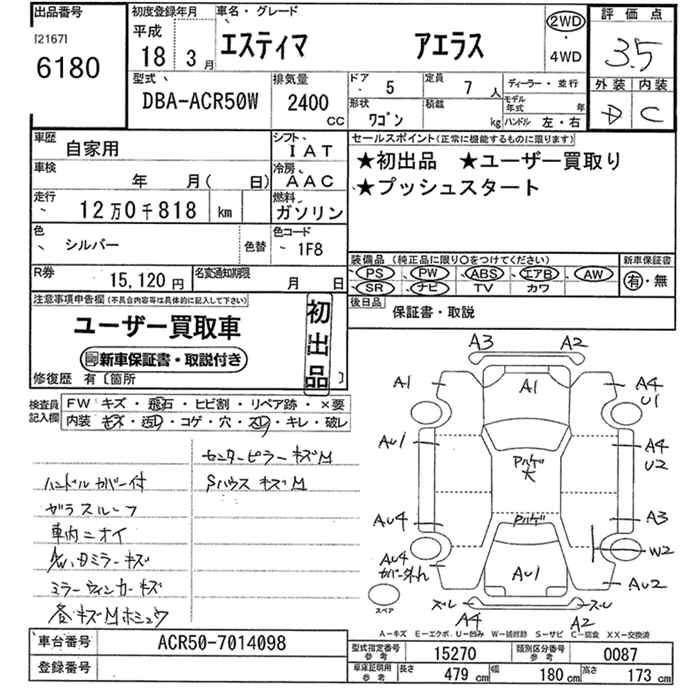 出品番号
[2167]
6180
初度登録年月
平成
18年 3月
車名・グレード
エスティマ アエラス
2WD
・
4WD
評価点
3.5
外装 内装
D C
型式
DBA-ACR50W
排気量
2400
CC
ドア
5
定員
7人
形状
ワゴン
積載
kg
ディーラー・並行
モデル年式 年
ハンドル 左・右
車歴
自家用
シフト
IAT
車検
年 月( 日)
冷房
AAC
走行
12万0千818 km
燃料
ガソリン
色
シルバー
色替
色コード
1F8
R券
15,120円
名変通知期限
月 日
セールスポイント(正常に機能するものに限ります)
★初出品 ★ユーザー買取り
★プッシュスタート
装備品(純正品に限り○をつけてください)
PS PW ABS エアB AW
SR ナビ TV カワ
新車保証書
有・無
後日品
保証書・取説
注意事項申告欄(不具合内容等は具体的に記入して下さい)
ユーザー買取車
新車保証書・取説付き
初出品
修復歴 有〔箇所 〕
検査員記入欄
FW キズ・飛石・ヒビ割・リペア跡・×要
内装 キズ・汚D・コゲ・穴・スレ・キレ・破レ
センターピラーキズM
ハンドルカバー付
Sハウスキズ M
ガラスルーフ
車内ニオイ
ミラーウィンカーキズ
A3 A2
A1 A1 A4
U1
AU1 A4
U2
Pルゲ
大
AU4 A3
Pルゲ
W2
AU4
カバー外れ
AU1 AU2
スペア
ズレ ズレ
A4 A2
A-キズ E-エクボ U-凹み W-補修跡 S-サビ C-腐食 XX-交換済
車台番号
ACR50-7014098
登録番号
型式指定番号
参考
15270
類別区分番号
参考
0087
車庫証明用
参考
長さ
479 cm
幅
180 cm
高さ
173 cm